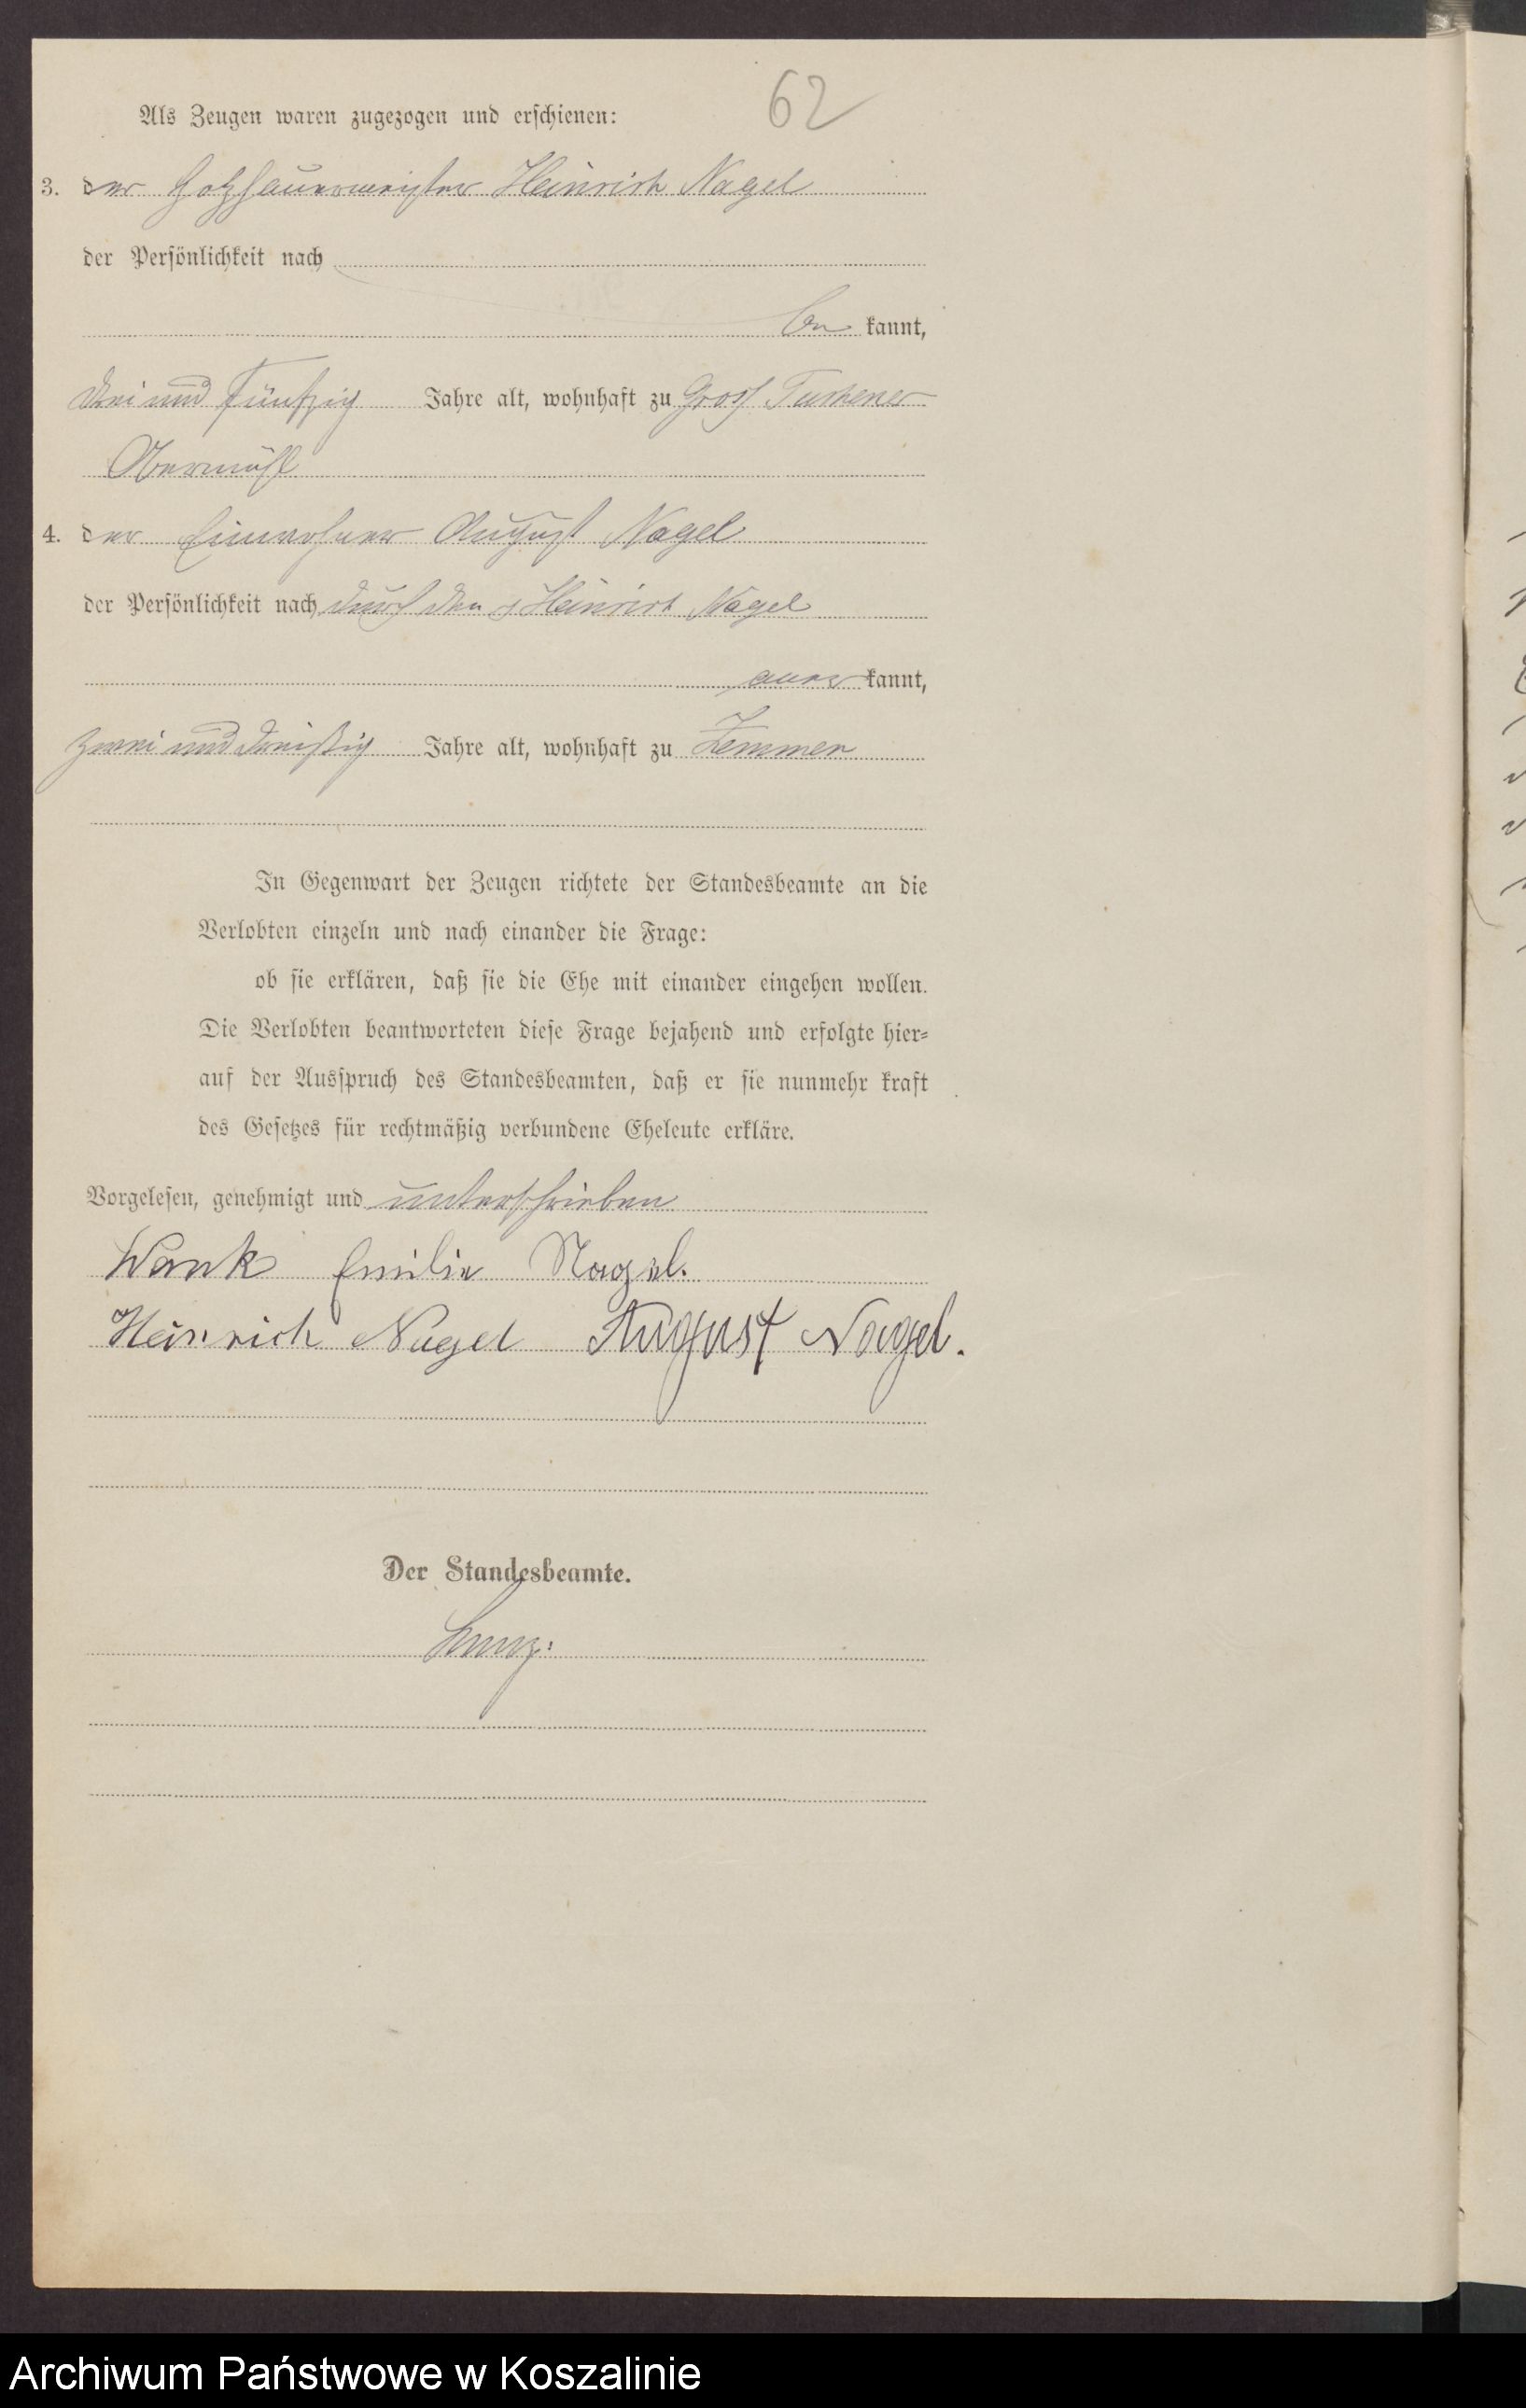 62
Als Zeugen waren zugezogen und erschienen:
3. der Holzhauermeister Heinrich Nagel
der Persönlichkeit nach
be kannt,
drei und fünfzig Jahre alt, wohnhaft zu Gross Tuchener
Obermühl
4. der Einwohner August Nagel
der Persönlichkeit nach durch den Heinrich Nagel
aner kannt,
zwei und dreißig Jahre alt, wohnhaft zu Zemmen
In Gegenwart der Zeugen richtete der Standesbeamte an die
Verlobten einzeln und nach einander die Frage:
ob sie erklären, daß sie die Ehe mit einander eingehen wollen.
Die Verlobten beantworteten diese Frage bejahend und erfolgte hier-
auf der Ausspruch des Standesbeamten, daß er sie nunmehr kraft
des Gesetzes für rechtmäßig verbundene Eheleute erkläre.
Vorgelesen, genehmigt und unterschrieben
Wank Emilie Nagel.
Heinrich Nagel August Nagel.
Der Standesbeamte.
Archiwum Państwowe w Koszalinie